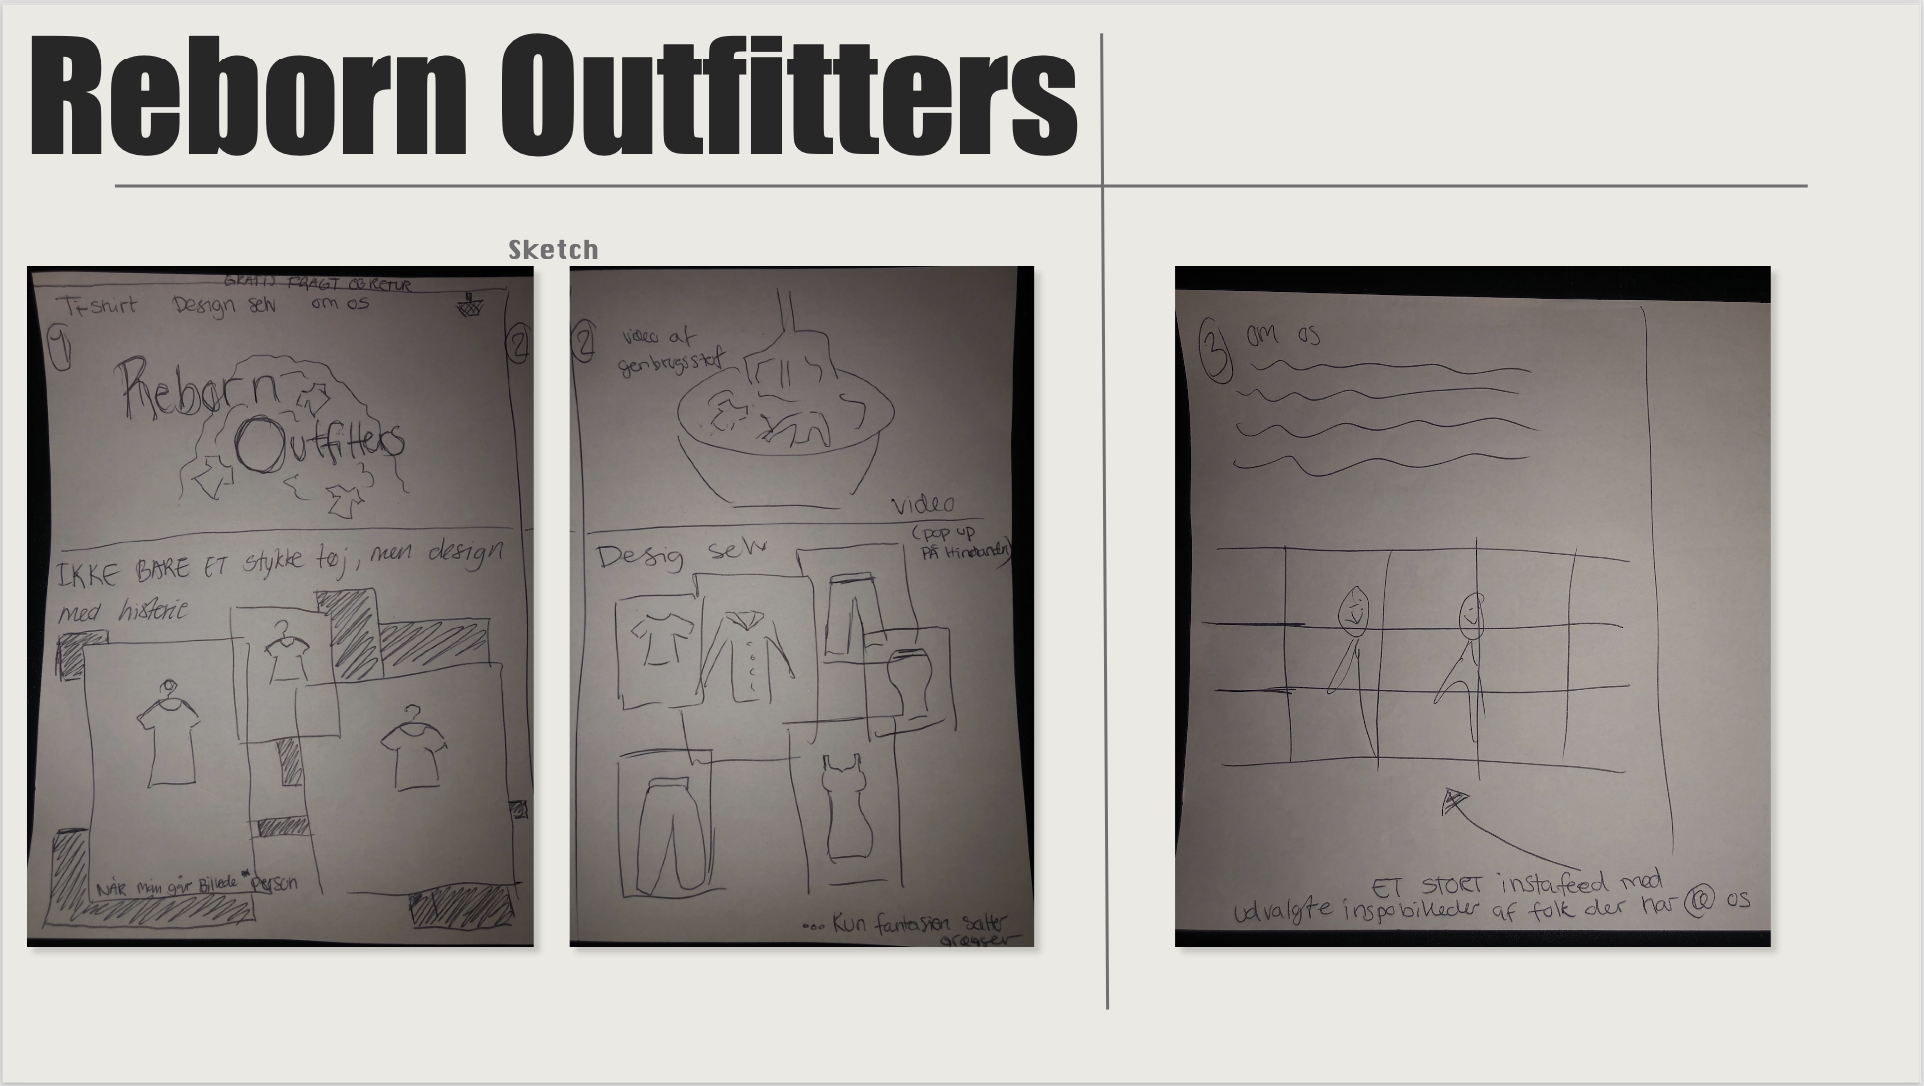 Reborn Outfitters
Sketch
GRATIS FRAGT OG RETUR
T-shirt Design selv om os
1
2
Reborn
Outfitters
IKKE BARE ET stykke tøj, men design
med historie
NÅR man går Billede person
2
video af
genbrugsstof
video
(pop up
PÅ Hinanden)
Desig selv
... Kun fantasien sætter
grænser
3 om os
ET STORT instafeed med
udvalgte inspobilleder af folk der har @ os